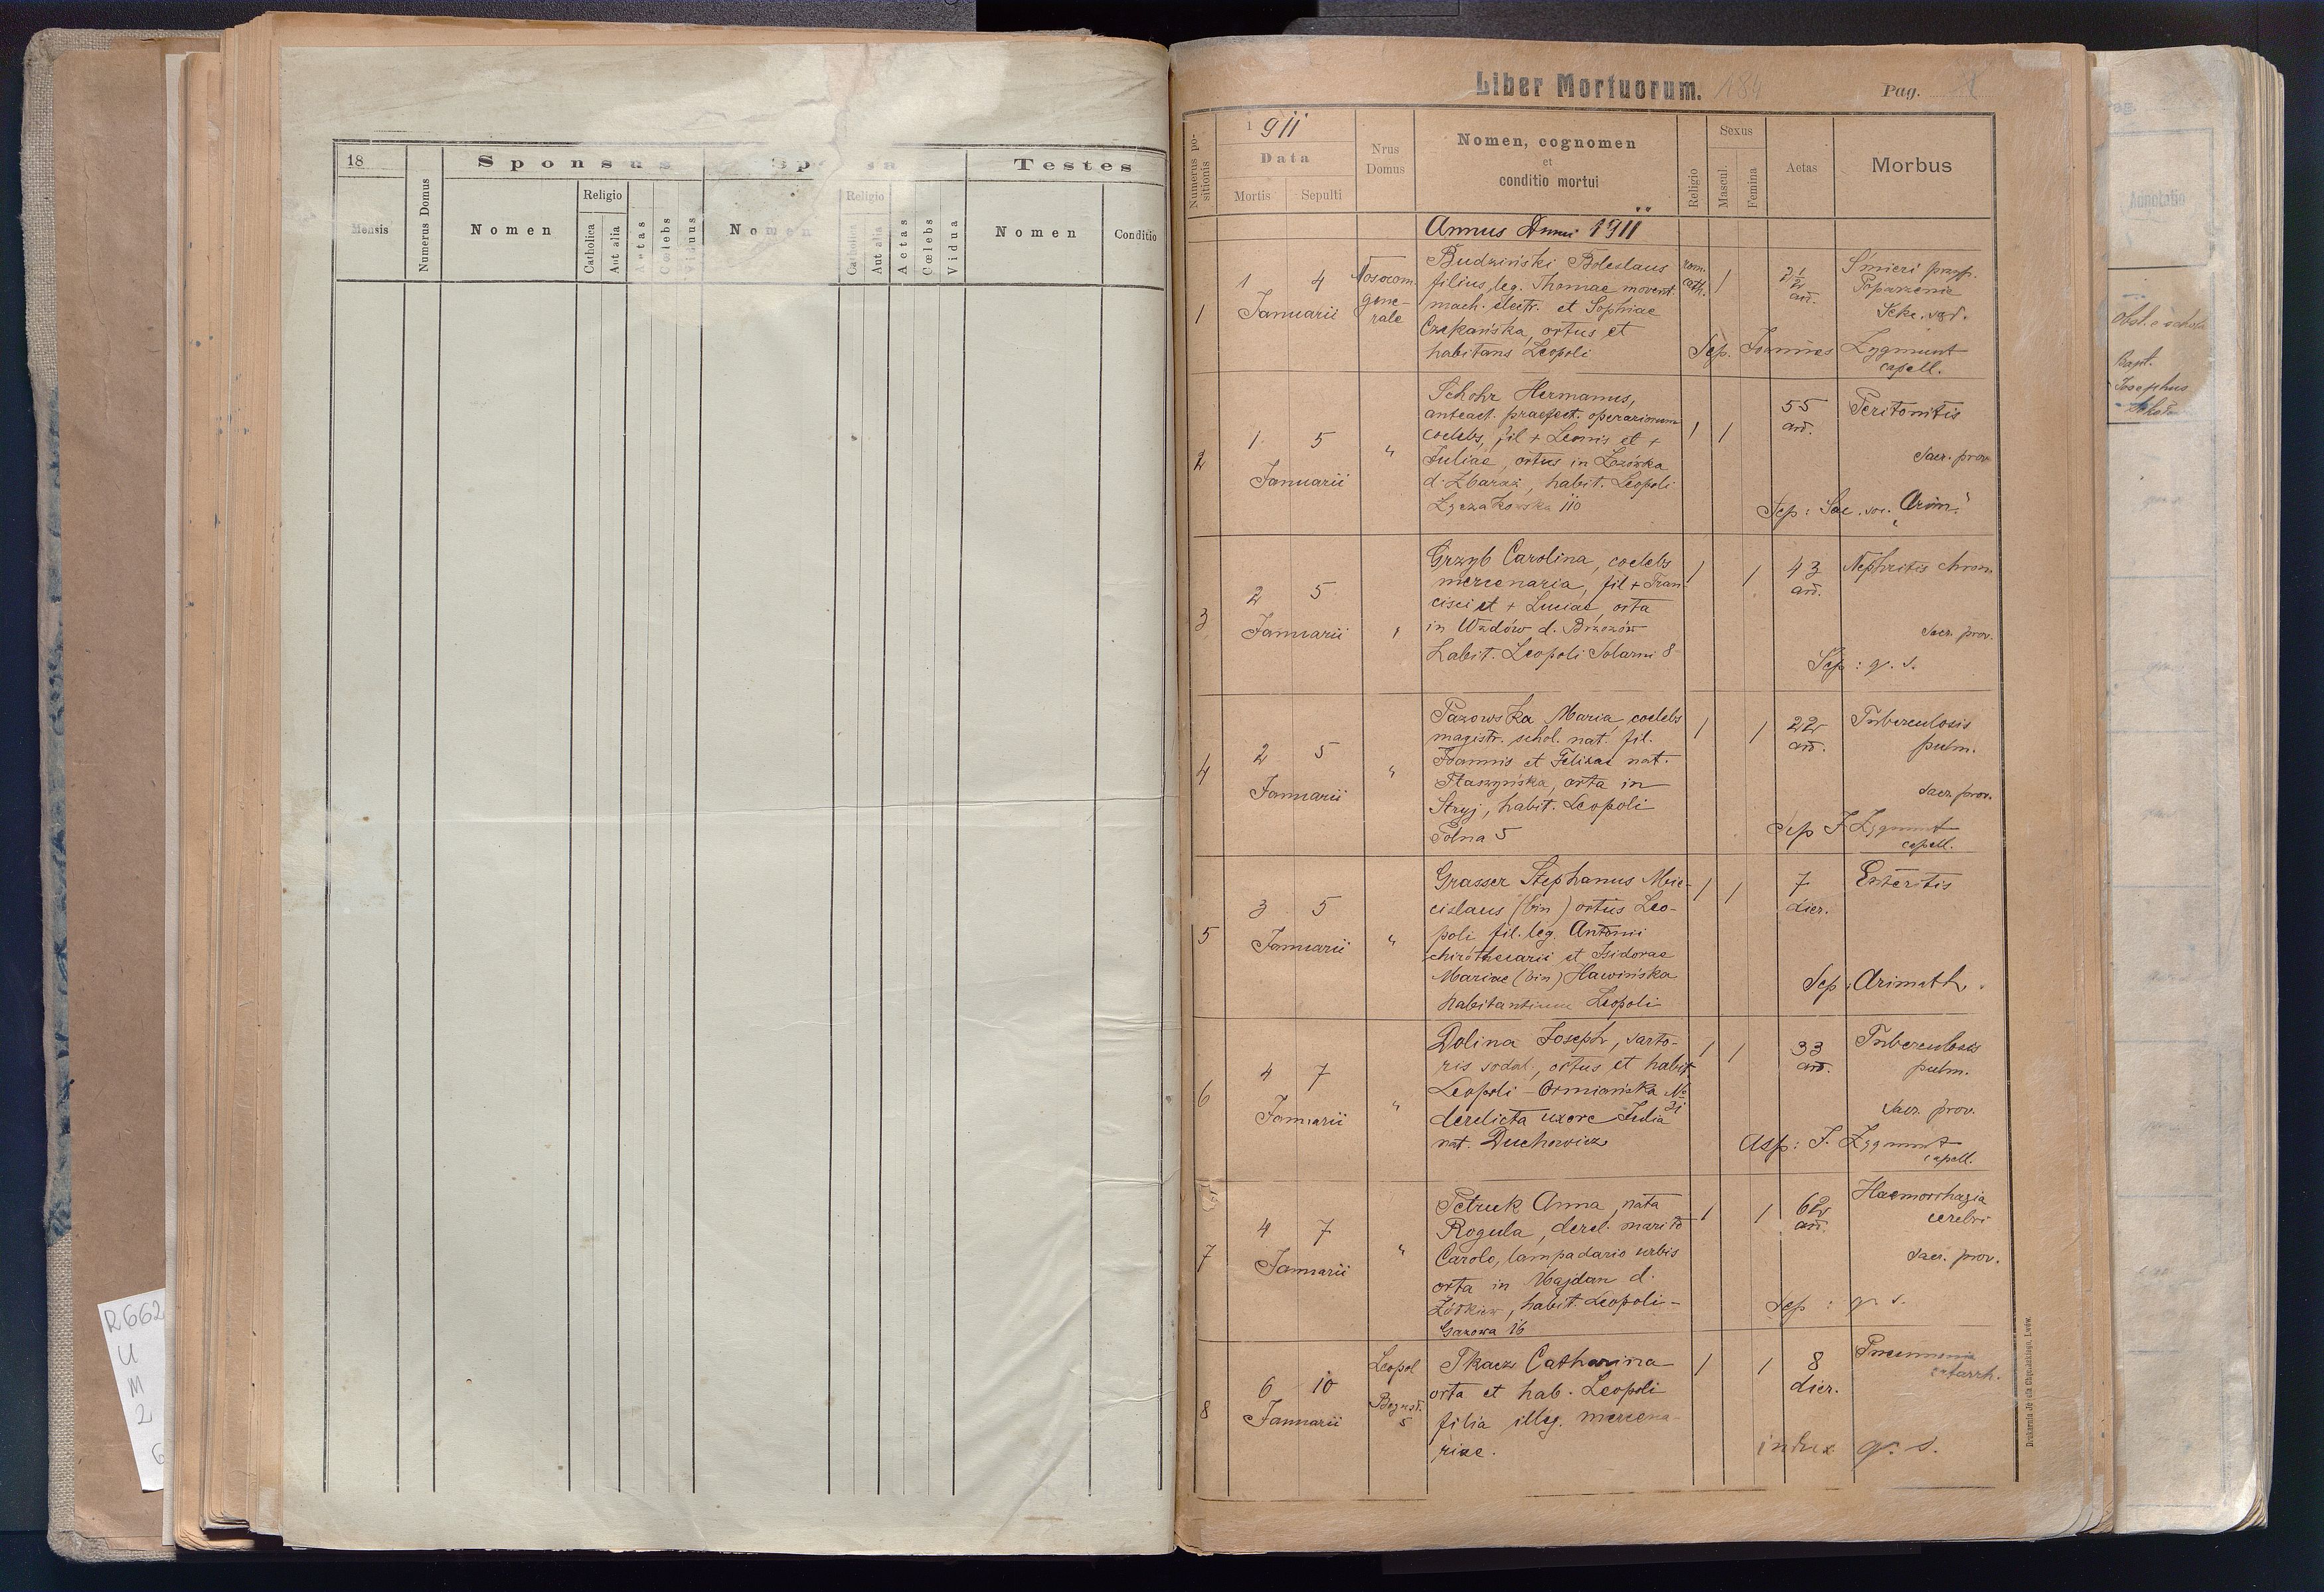 18
Sponsus
Testes
Mensis
Numerus Domus
Nomen
Religio
Catholica
Aut alia
Aetas
Cœlebs
Viduus
Nomen
Religio
Catholica
Aut alia
Aetas
Cœlebs
Vidua
Nomen
Conditio
R662
U
M
2
6
Liber Mortuorum. 184
Pag.
Numerus positionis
1911
Data
Mortis
Sepulti
Nrus Domus
Nomen, cognomen
et
conditio mortui
Religio
Sexus
Mascul
Femina
Aetas
Morbus
Annus Dnni 1911
1
1 4
Januarii
Nosocom.
gene-
rale
Budziński Boleslaus
filius leg. Thomae movent.
mach. electr. et Sophiae
Czekańska, ortus et
habitans Leopoli
rom.
cath.
1
2½
an.
Śmierć przyp.
Poparzenie
Sep. Joannes Zygmunt
capell.
2
1 5
Januarii
"
Schohr Hermanus,
anteact. praefect. operariorum
coelebs, fil + Leonis et +
Juliae, ortus in Łozówka
d. Zbaraż, habit. Leopoli
Łyczakowska 110
1
1
55
an.
Peritonitis
Sacr. prov.
Sep: Sac. soc. "Arim."
3
2 5
Januarii
"
Grzyb Carolina, coelebs
mercenaria, fil + Fran-
cisci et + Luciae, orta
in Wzdów d. Brzozów
habit. Leopoli Solarni 8
1
1
43
an.
Nephritis chron.
Sacr. prov.
Sep: q. s.
4
2 5
Januarii
"
Pazowska Maria, coelebs
magistr. schol. nat. fil.
Joannis et Felixae nat.
Ptaszyńska, orta in
Stryj, habit. Leopoli
Polna 5
1
1
22
an.
Tuberculosis
pulm.
Sacr. prov.
Sep J. Zygmunt
capell.
5
3 5
Januarii
"
Grasser Stephanus Mie-
cislaus (bin) ortus Leo-
poli fil. leg. Antonii
chirothecarii et Isidorae
Mariae (bin) Hawińska
habitantium Leopoli
1
1
7
dier.
Enteritis
Sep. Arimath.
6
4 7
Januarii
"
Dolina Joseph, sarto-
ris sodal, ortus et habit.
Leopoli Ormiańska No
31
derelicta uxore Julia
nat. Duchowicz
1
1
33
an.
Tuberculosis
pulm.
Sacr. prov.
Asp: J. Zygmunt
capell.
7
4 7
Januarii
"
Petruk Anna, nata
Rogula, derel. marito
Carolo, lampadario urbis
orta in Majdan d.
Żółkiew, habit. Leopoli
Gazowa 16
1
1
62
an.
Haemorrhagia
cerebri
Sacr. prov.
Sep: q. s.
8
6 10
Januarii
Leopol
5
Tkacz Catharina
orta et hab. Leopoli
filia illeg. mercena-
riae.
1
1
8
dier.
Pneumonia
catarrh.
index q. s.
Annotatio
Bapt.
Josephus